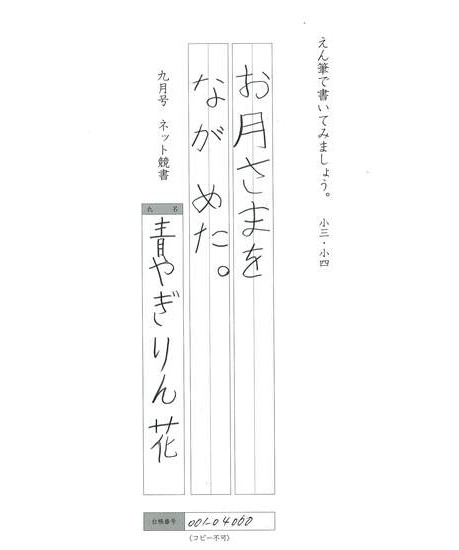 えん筆で書いてみましょう。 小三・小四
お月さまを
ながめた。
九月号 ネット競書
氏名
青やぎりん花
台帳番号 001-04060
(コピー不可)